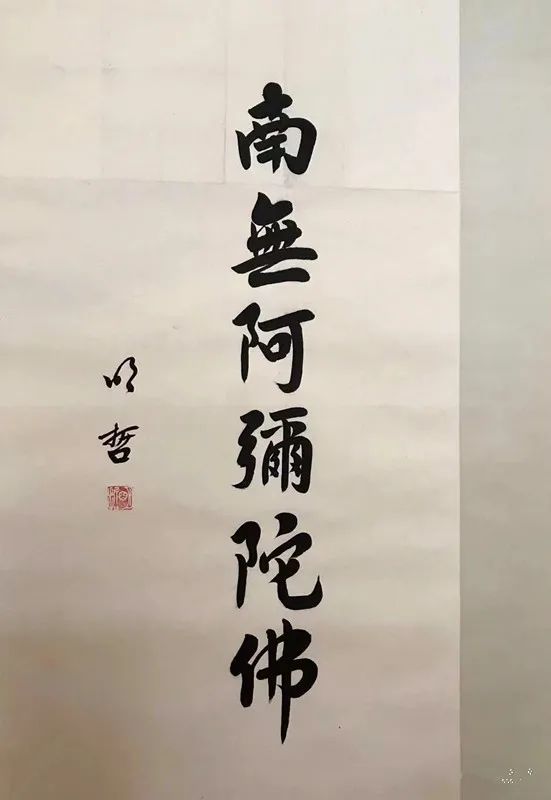 南無阿彌陀佛
明哲